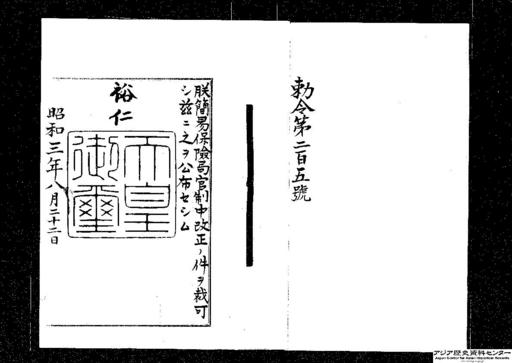 勅令第二百五號
朕簡易保險局官制中改正ノ件ヲ裁可
シ茲ニ之ヲ公布セシム
裕仁
天皇
御璽
昭和三年八月二十二日
アジア歴史資料センター
Japan Center for Asian Historical Records